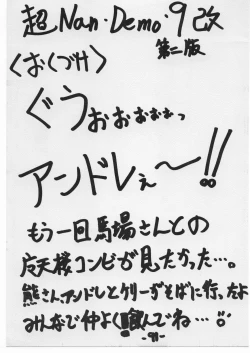 超Nan・Demo・9改
第二版
<おくづけ>
ぐうぉぉぉぉぉっ
アンドレぇ〜!!
もう一回馬場さんとの
巨天楼コンビが見たかった…。
熊さんアンドレとケリーがそばに行ったよ
みんなで仲よく飲んでね…